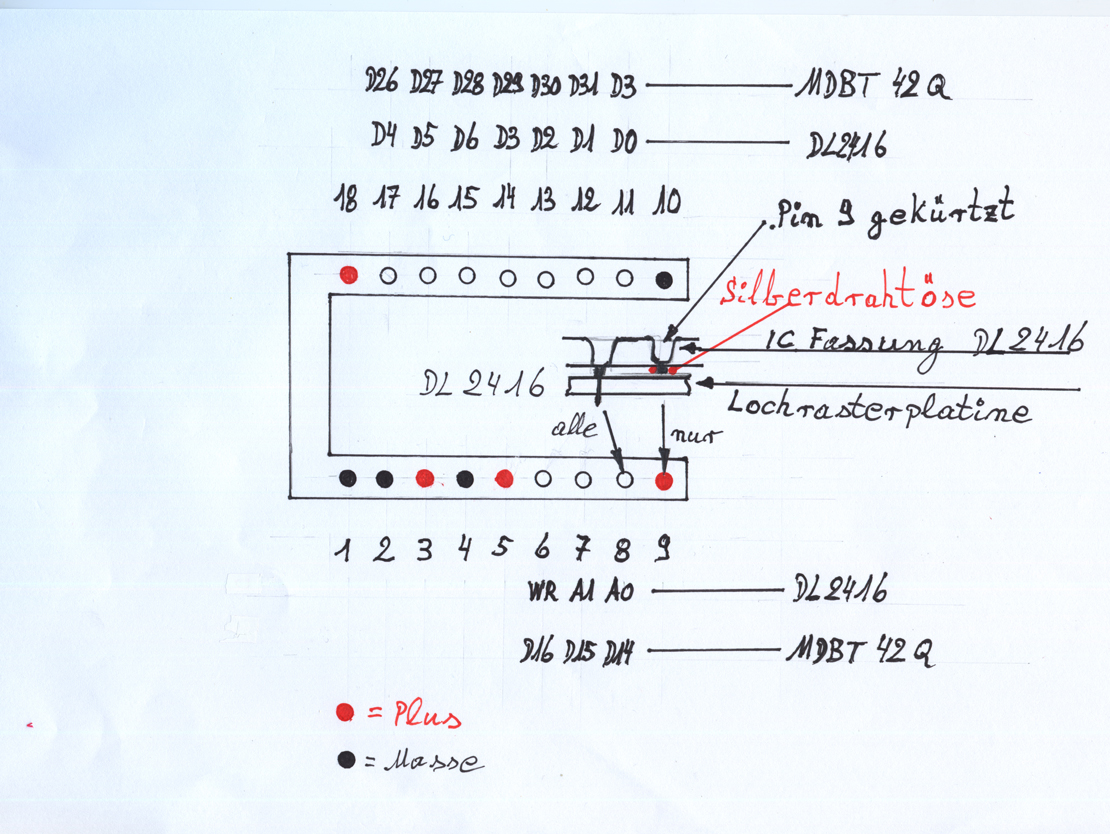 D26 D27 D28 D29 D30 D31 D3 MDBT 42 Q
D4 D5 D6 D3 D2 D1 D0 DL2416
18 17 16 15 14 13 12 11 10
Pin 9 gekürtzt
Silberdrahtöse
IC Fassung DL 2416
DL 2416
Lochrasterplatine
alle
nur
1 2 3 4 5 6 7 8 9
WR A1 A0 DL2416
D16 D15 D14 MDBT 42 Q
= Plus
= Masse